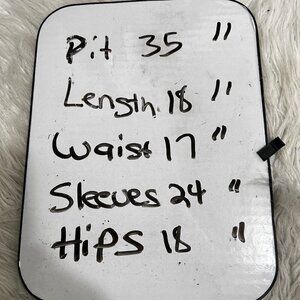 Pit 35 "
Length 18 "
Waist 17 "
Sleeves 24 "
HiPS 18 "